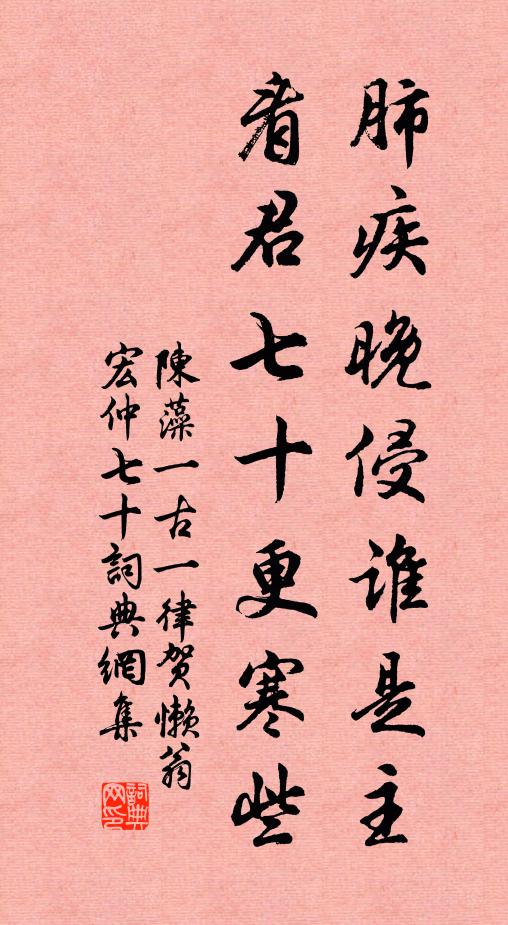 肺疾晚侵谁是主
看君七十更寒些
陳藻一古一律贺懒翁
宏仲七十詞典網集
詞典网印